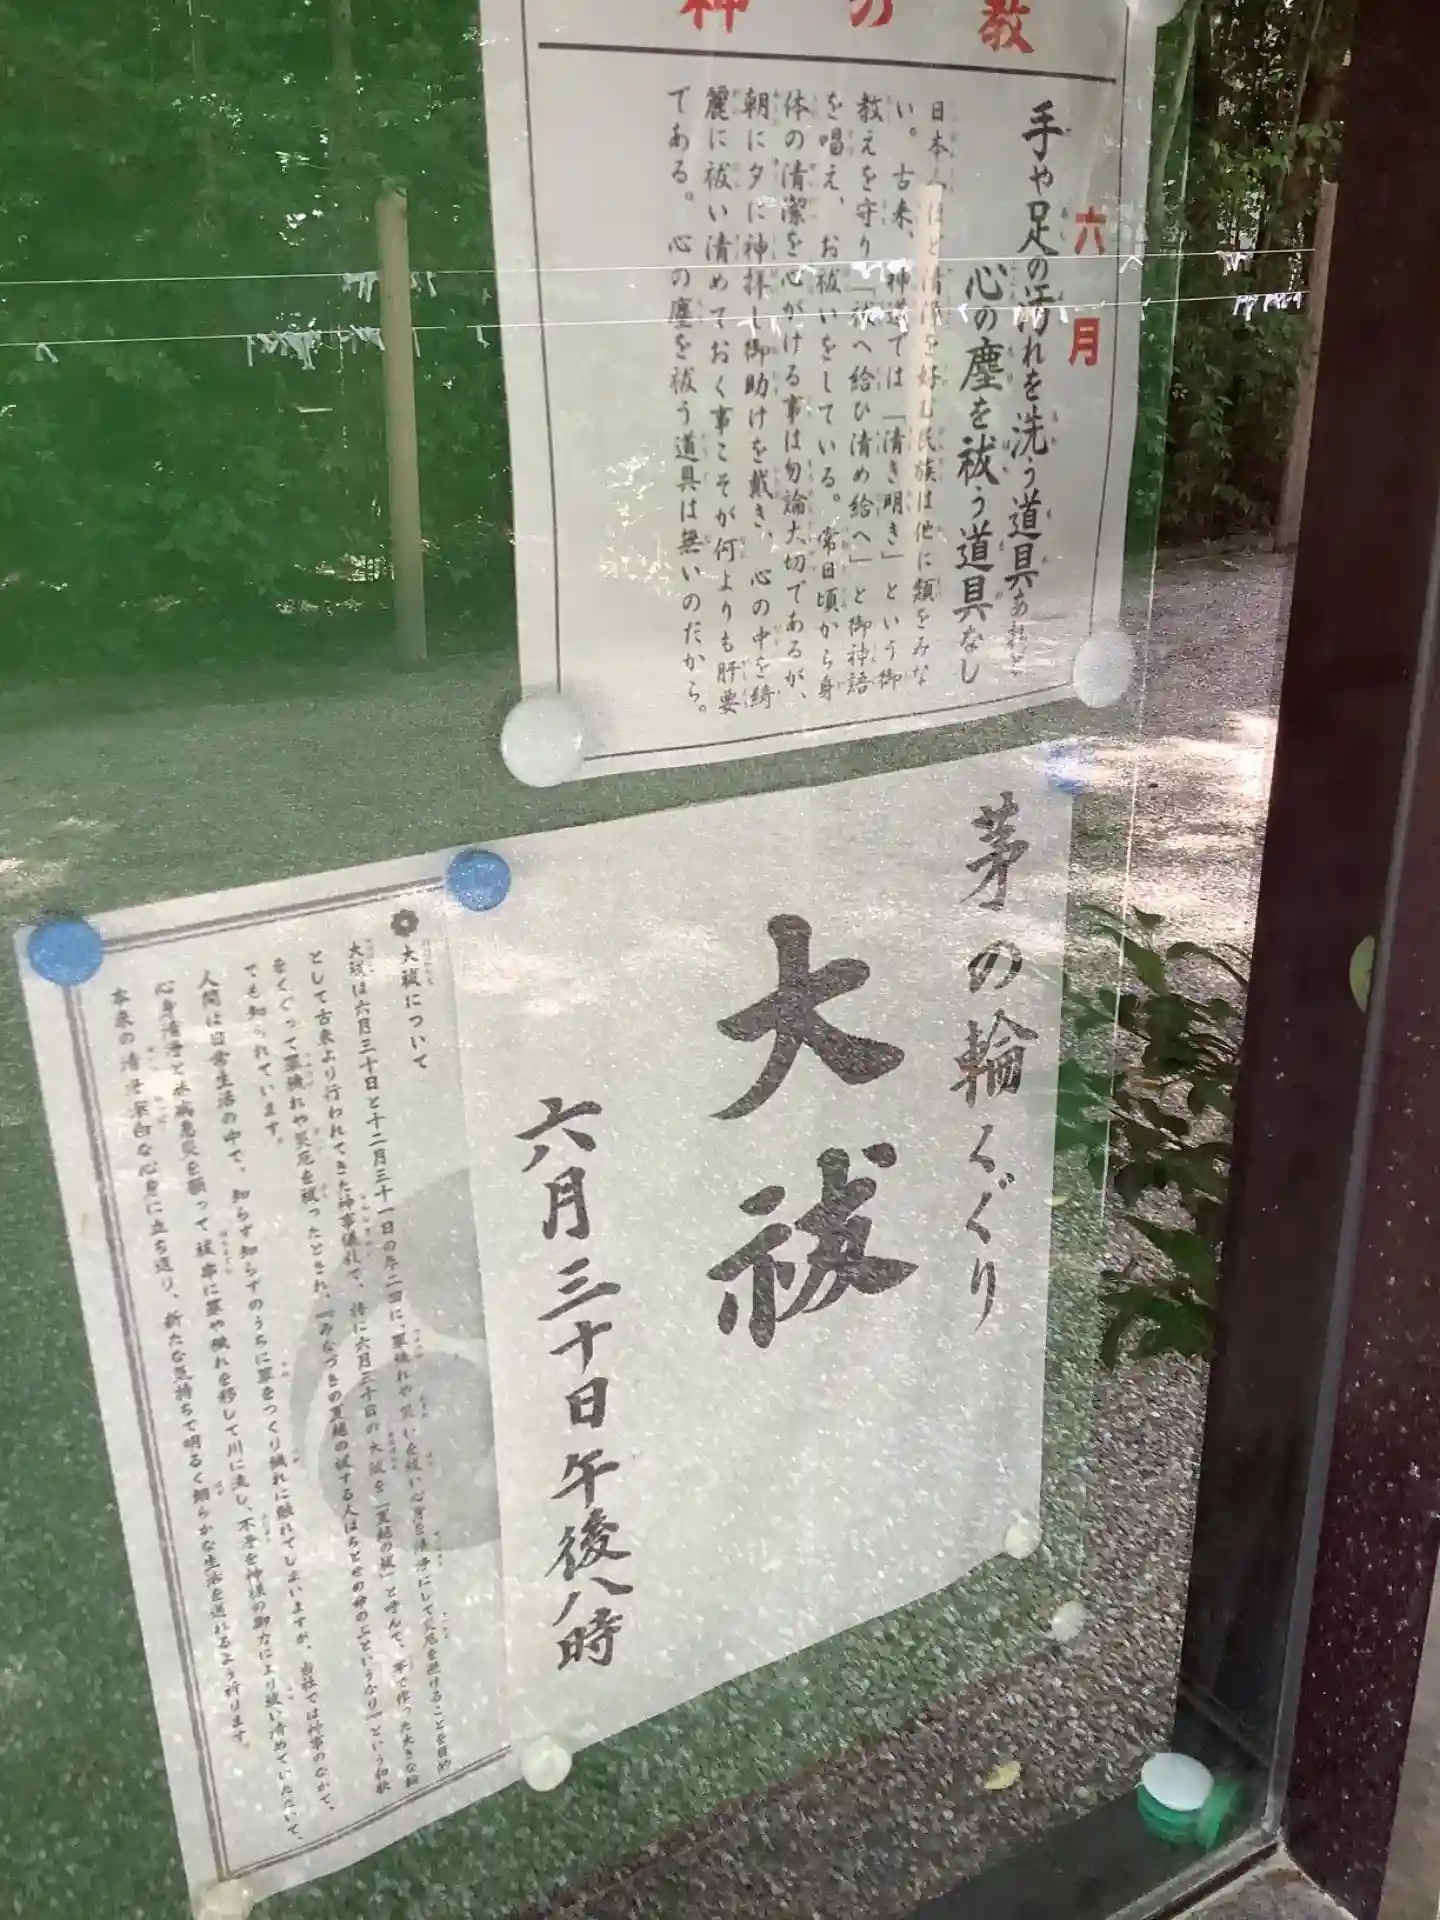 神の教
六月
手や足の汚れを洗う道具あれど
心の塵を祓う道具なし
日本人ほど清潔を好む民族は他に類をみな
い。古来、神道では「清き明き」という御
教えを守り「祓へ給ひ清め給へ」と御神語
を唱え、お祓いをしている。常日頃から身
体の清潔を心がける事は勿論大切であるが、
朝に夕に神拝し御助けを戴き、心の中を綺
麗に祓い清めておく事こそが何よりも肝要
である。心の塵を祓う道具は無いのだから。
茅の輪くぐり
大祓
六月三十日午後八時
大祓について
大祓は六月三十日と十二月三十一日の年二回に、罪穢れや災いを祓い心身を清浄にして災厄を避けることを目的
として古来より行われてきた神事儀礼で、特に六月三十日の大祓を「夏越の祓」と呼んで、茅で作った大きな輪
をくぐって罪穢れや災厄を祓ったとされ、『みなづきの夏越の祓する人はちとせの命のぶというなり』という和歌
でも知られています。
人間は日常生活の中で、知らず知らずのうちに罪をつくり穢れに触れてしまいますが、当社では神事のなかで、
心身清浄と無病息災を願って祓串に罪や穢れを移して川に流し、不浄を神様の御力により祓い清めていただいて、
本来の清浄潔白な心身に立ち返り、新たな気持ちで明るく朗らかな生活を送れるよう祈ります。